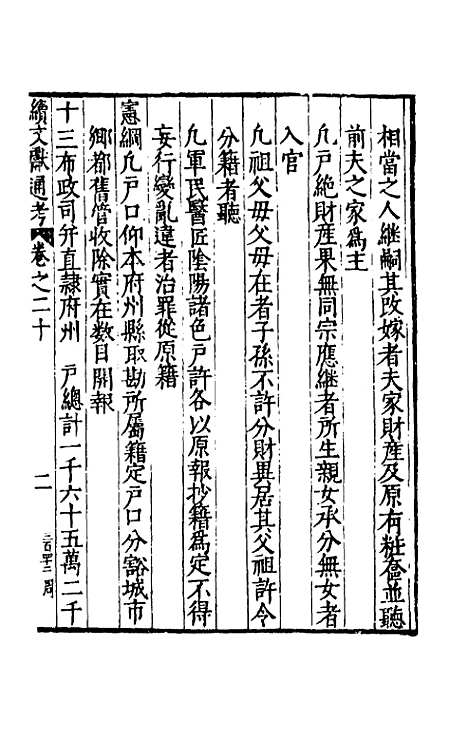 相當之人繼嗣其改嫁者夫家財産及原有粧奩並聽
前夫之家為主
凡戸絶財産果無同宗應繼者所生親女承分無女者
入官
凡祖父母父母在者子孫不許分財異居其父祖許令
分籍者聽
凡軍民醫匠陰陽諸色戸許各以原報抄籍為定不得
妄行變亂違者治罪從原籍
憲綱凡戸口仰本府州縣取勘所屬籍定戸口分豁城市
鄉都舊管收除實在数目開報
十三布政司并直隷府州 戸總計一千六十五萬二千
續文獻通考 卷之二十 二